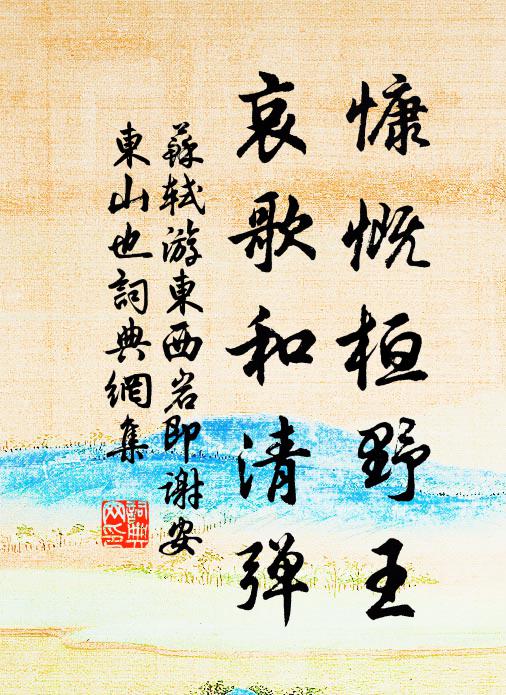 慷慨桓野王
哀歌和清弹
蘇轼游東西岩即谢安
東山也詞典網集
詞典网印